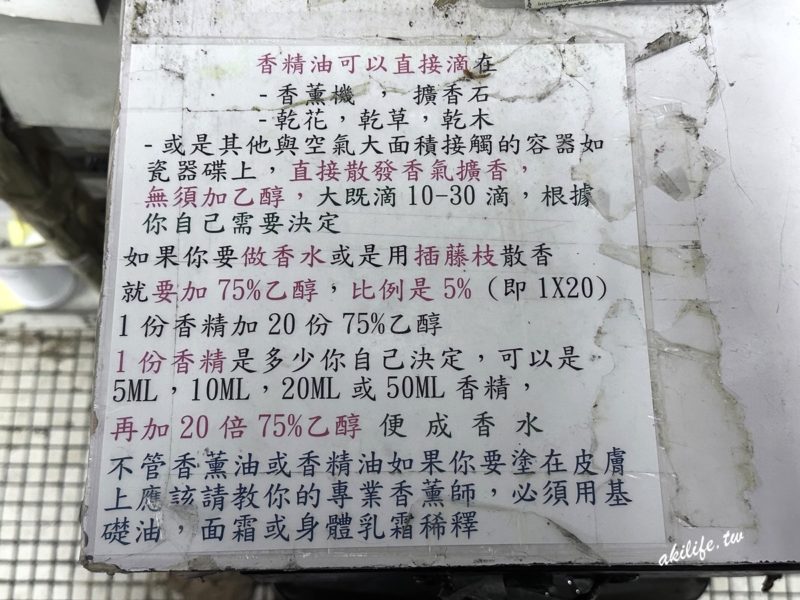 香精油可以直接滴在
-香薰機 ， 擴香石
-乾花，乾草，乾木
-或是其他與空氣大面積接觸的容器如
瓷器碟上，直接散發香氣擴香，
無須加乙醇，大既滴 10-30 滴，根據
你自己需要決定
如果你要做香水或是用插藤枝散香
就要加 75%乙醇，比例是 5%（即 1X20）
1份香精加 20 份 75%乙醇
1份香精是多少你自己決定，可以是
5ML，10ML，20ML 或 50ML 香精，
再加 20 倍 75%乙醇 便 成 香 水
不管香薰油或香精油如果你要塗在皮膚
上應該請教你的專業香薰師，必須用基
礎油，面霜或身體乳霜稀釋
akilife.tw